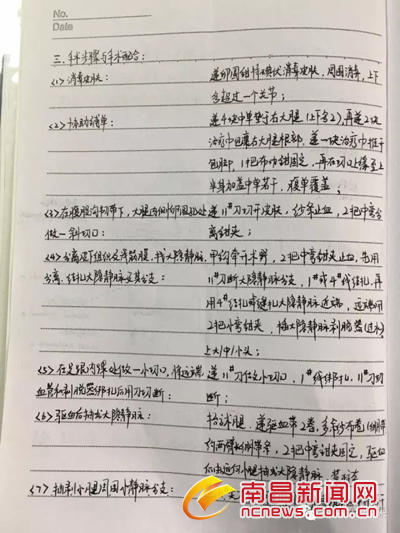 No.
Date
三. 手术步骤与手术配合:
<1>消毒皮肤: 递卵圆钳持碘伏消毒皮肤, 周围消毒, 上下
各超过一个关节;
<2>协助铺单: 递4块中单垫于右大腿(上下各2), 再递2块
治疗巾包裹右大腿根部, 递一块治疗巾
包脚, 1把布巾钳固定, 再在切口上缘至上
半身加盖中单若干, 腹单覆盖;
<3>在腹股沟韧带下, 大腿内侧 递11#刀切开皮肤, 纱条止血, 2把中弯
做一斜切口: 钳夹
<4>分离皮下组织及浅筋膜, 找大隐静脉, 甲钩牵开术野, 2把中弯钳夹止血, 先用
分离, 结扎大隐静脉及其分支: 11#刀断大隐静脉分支, 1#或4#线结扎, 再
用4#结扎或缝扎大隐静脉近端, 远端用
2把中弯钳夹, 插大隐静脉剥脱器(过水)
上大/中/小头;
<5>在足踝内侧处做一小切口, 将远端 递11#刀作小切口, 1#线绑扎, 11#刀切
血管和剥脱器绑扎后用刀切断: 断;
<6>驱血后抽出大隐静脉: 抬高术腿, 递驱血带2卷, 多余纱布卷
2把中弯钳固定, 驱血
后由远向小腿抽出大隐静脉
<7>抽剥小腿周围小静脉分支:
南昌新闻网
ncnews.com.cn